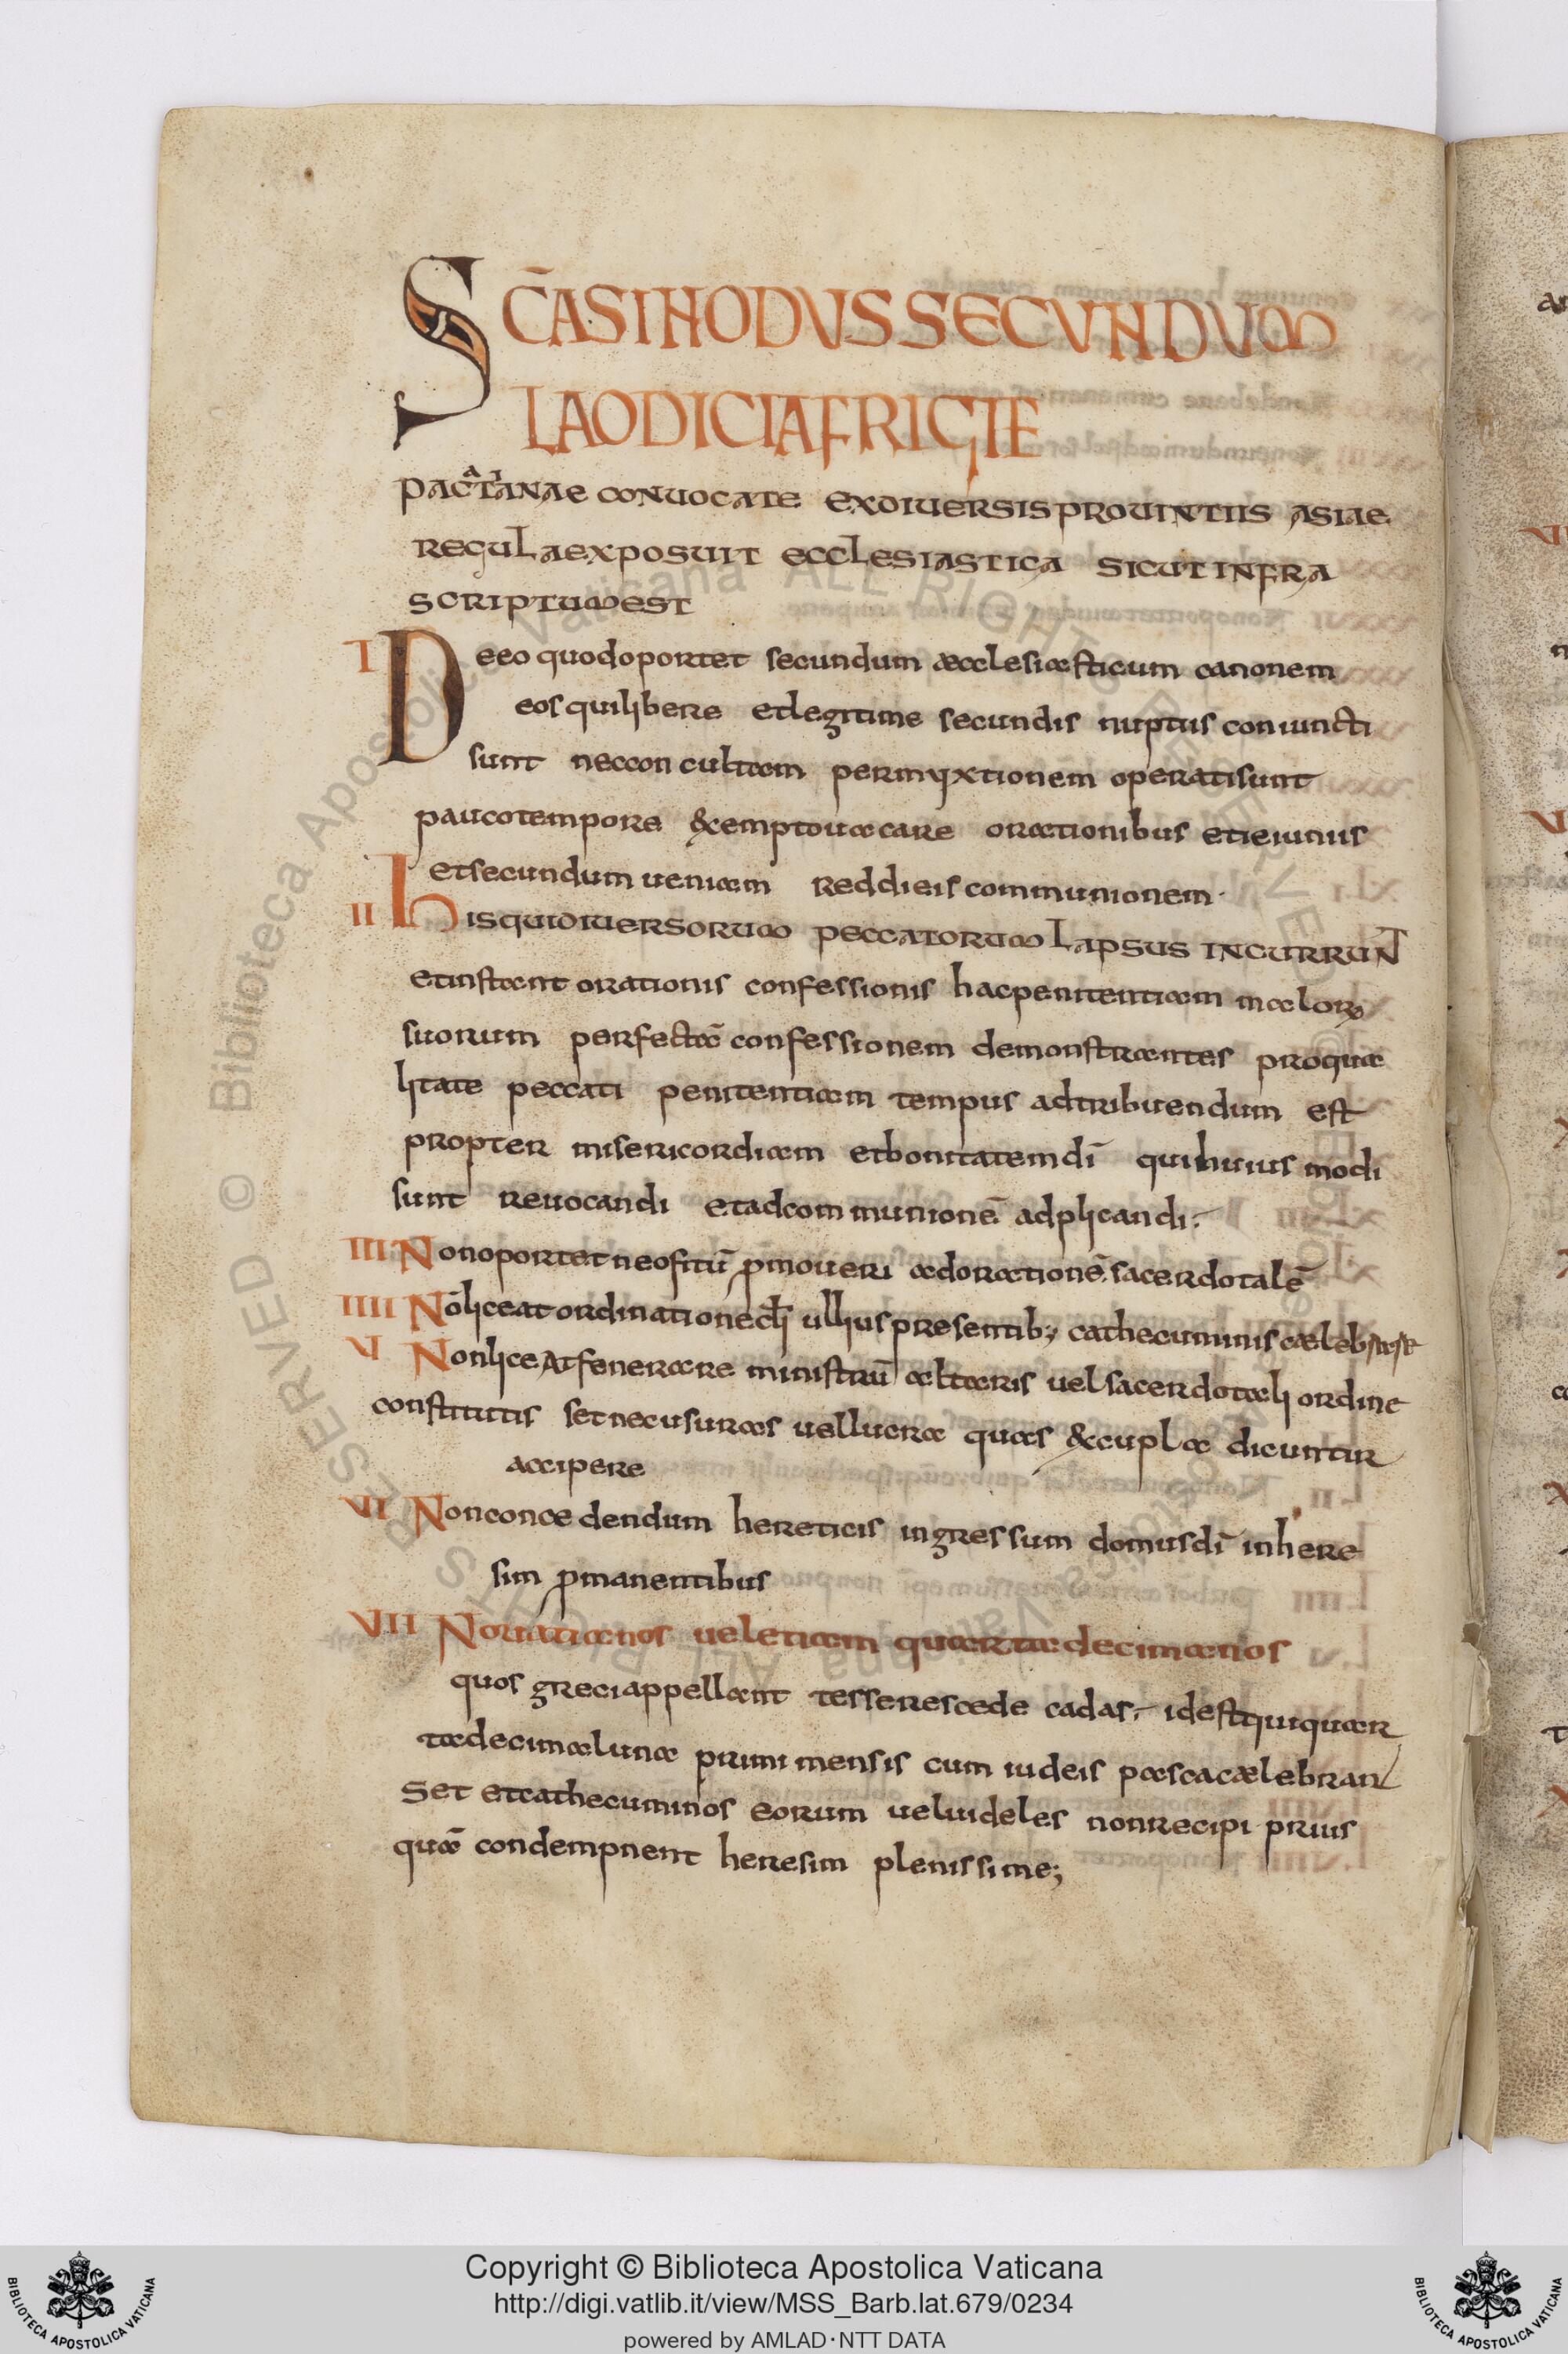 SC̄A SINODUS SECUNDUM
LAODICIA FRIGIE
PACATIANAE CONVOCATE EXDIVERSIS PROVINTIIS ASIAE
REGULA EXPOSUIT ECCLESIASTICA SICUT INFRA
SCRIPTUM EST
I De eo quod oportet secundum æcclesiasticum canonem
eos qui libere et legitime secundis nuptus coniuncti
sunt nec concultam permyxtionem operati sunt
pauco tempore & empto uacare orationibus et ieiuniis
et secundum ueniam reddi eis communionem·
II His qui DIVERSORUM PECCATORUM LAPSUS INCURRUNT
et instant orationis confessionis hac penitentiam malorꝝ
suorum perfectā confessionem demonstrantes pro qua
litate peccati penitentiam tempus adtribuendum est
propter misericordiam et bonitatem dī qui huius modi
sunt reuocandi et ad communionē adplicandi;
III Non oportet neofitū ꝓmoueri adorationē sacerdotalē
IIII Nō liceat ordinatione ullius presentib; cathecuminis cælebrare
V Non liceat fenerare ministrū altaris uel sacerdotali ordine
constitutis set nec usuras uel lucra quas &cupla dicuntur
accipere
VI Non concedendum hereticis ingressum domus dī in here
sim ꝓmanentibus
VII Nouatianos uel etiam quartadecimanos
quos greci appellant tesserescaede cadas; id est qui quar
tadecima luna primi mensis cum iudeis pasca cælebran
Set et cathecuminos eorum uel uideles non recipi prius
quā condempnent heresim plenissime;
Copyright © Biblioteca Apostolica Vaticana
http://digi.vatlib.it/view/MSS_Barb.lat.679/0234
powered by AMLAD·NTT DATA
BIBLIOTECA APOSTOLICA VATICANA
BIBLIOTECA APOSTOLICA VATICANA